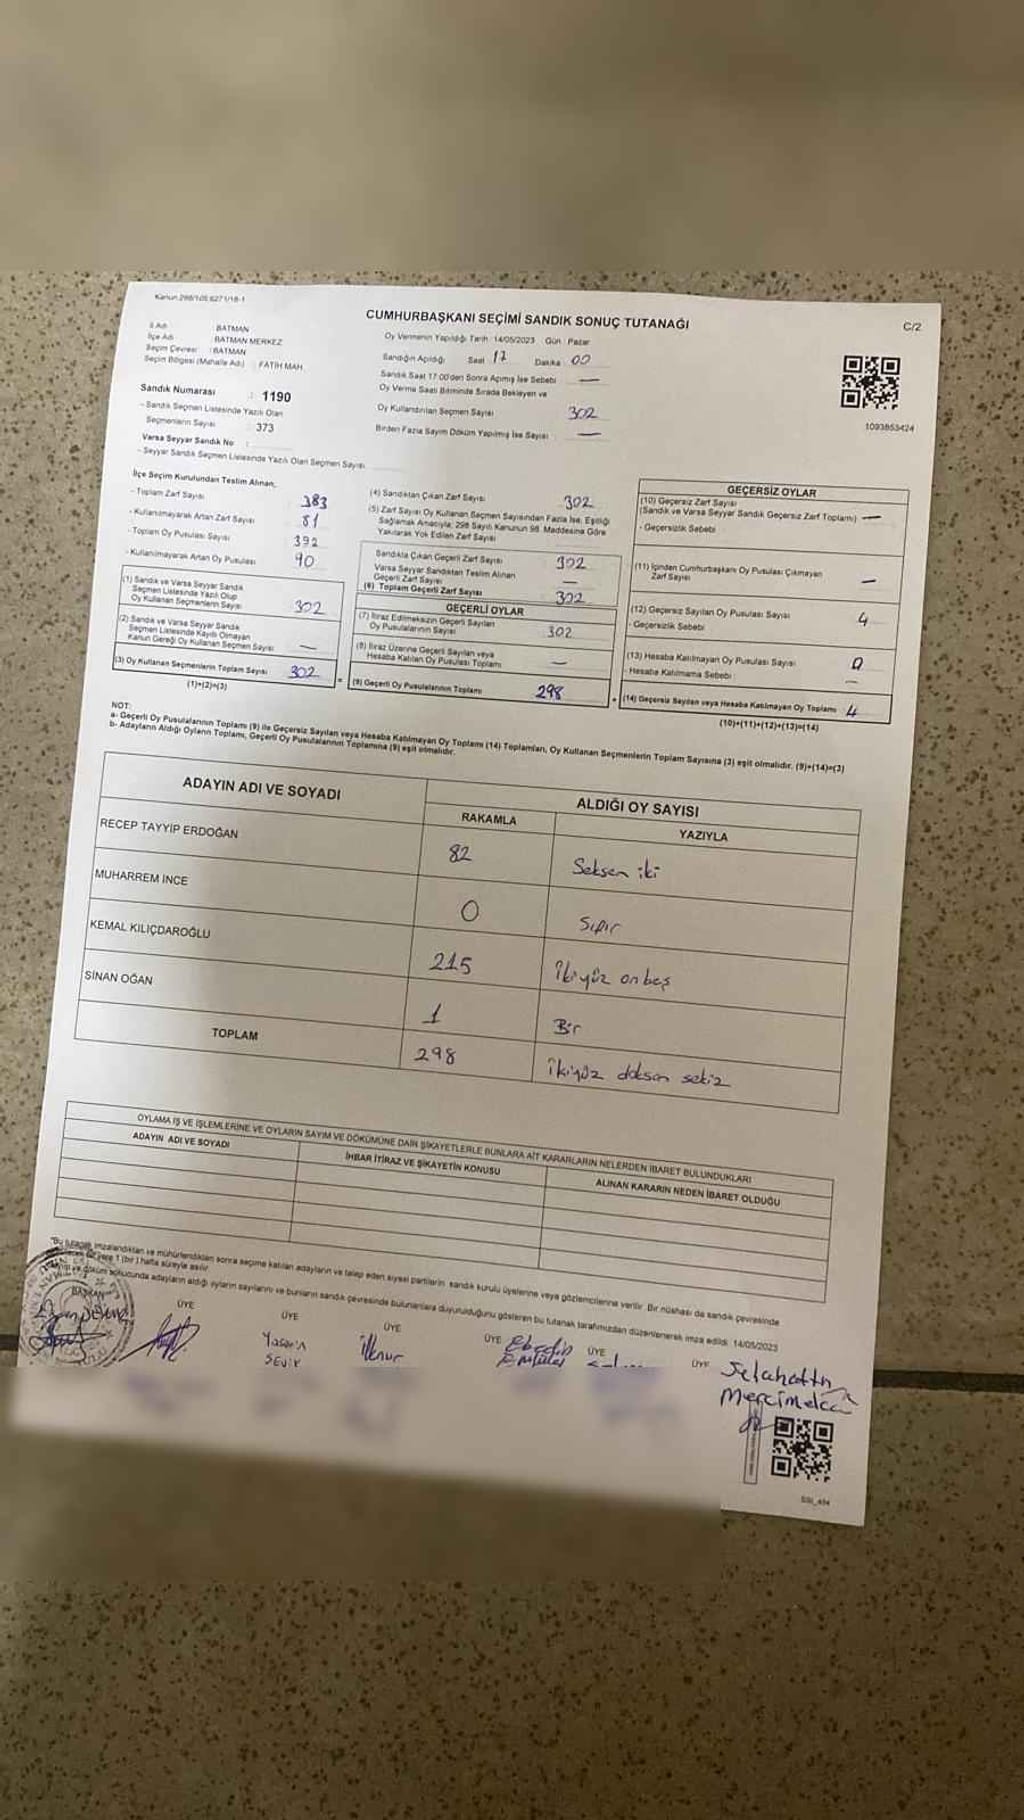 Kanun:298/105:6271/18-1
CUMHURBAŞKANI SEÇİMİ SANDIK SONUÇ TUTANAĞI
C/2
İl Adı : BATMAN
İlçe Adı : BATMAN MERKEZ
Seçim Çevresi : BATMAN
Seçim Bölgesi (Mahalle Adı) : FATİH MAH.
Sandık Numarası : 1190
- Sandık Seçmen Listesinde Yazılı Olan
Seçmenlerin Sayısı : 373
Varsa Seyyar Sandık No :
- Seyyar Sandık Seçmen Listesinde Yazılı Olan Seçmen Sayısı
Oy Vermenin Yapıldığı Tarih: 14/05/2023 Gün: Pazar
Sandığın Açıldığı Saat 17 Dakika 00
Sandık Saat 17:00'den Sonra Açılmış İse Sebebi —
Oy Verme Saati Bitiminde Sırada Bekleyen ve
Oy Kullandırılan Seçmen Sayısı 302
Birden Fazla Sayım Döküm Yapılmış İse Sayısı —
1093853424
İlçe Seçim Kurulundan Teslim Alınan;
- Toplam Zarf Sayısı 383
- Kullanılmayarak Artan Zarf Sayısı 81
- Toplam Oy Pusulası Sayısı 392
- Kullanılmayarak Artan Oy Pusulası 90
(1) Sandık ve Varsa Seyyar Sandık
Seçmen Listesinde Yazılı Olup
Oy Kullanan Seçmenlerin Sayısı 302
(2) Sandık ve Varsa Seyyar Sandık
Seçmen Listesinde Kayıtlı Olmayan
Kanun Gereği Oy Kullanan Seçmen Sayısı —
(3) Oy Kullanan Seçmenlerin Toplam Sayısı 302
(1)+(2)=(3)
(4) Sandıktan Çıkan Zarf Sayısı 302
(5) Zarf Sayısı Oy Kullanan Seçmen Sayısından Fazla İse, Eşitliği
Sağlamak Amacıyla, 298 Sayılı Kanunun 98. Maddesine Göre
Yakılarak Yok Edilen Zarf Sayısı
Sandıkta Çıkan Geçerli Zarf Sayısı 302
Varsa Seyyar Sandıktan Teslim Alınan
Geçerli Zarf Sayısı —
(6) Toplam Geçerli Zarf Sayısı 302
GEÇERLİ OYLAR
(7) İtiraz Edilmeksizin Geçerli Sayılan
Oy Pusulalarının Sayısı 302
(8) İtiraz Üzerine Geçerli Sayılan veya
Hesaba Katılan Oy Pusulası Toplamı —
(9) Geçerli Oy Pusulalarının Toplamı 298
GEÇERSİZ OYLAR
(10) Geçersiz Zarf Sayısı
(Sandık ve Varsa Seyyar Sandık Geçersiz Zarf Toplamı) —
- Geçersizlik Sebebi
(11) İçinden Cumhurbaşkanı Oy Pusulası Çıkmayan
Zarf Sayısı —
(12) Geçersiz Sayılan Oy Pusulası Sayısı 4
- Geçersizlik Sebebi
(13) Hesaba Katılmayan Oy Pusulası Sayısı 0
- Hesaba Katılmama Sebebi —
(14) Geçersiz Sayılan veya Hesaba Katılmayan Oy Toplamı 4
(10)+(11)+(12)+(13)=(14)
NOT:
a- Geçerli Oy Pusulalarının Toplamı (9) ile Geçersiz Sayılan veya Hesaba Katılmayan Oy Toplamı (14) Toplamları, Oy Kullanan Seçmenlerin Toplam Sayısına (3) eşit olmalıdır. (9)+(14)=(3)
b- Adayların Aldığı Oyların Toplamı, Geçerli Oy Pusulalarının Toplamına (9) eşit olmalıdır.
ADAYIN ADI VE SOYADI
ALDIĞI OY SAYISI
RAKAMLA YAZIYLA
RECEP TAYYİP ERDOĞAN 82 Seksen iki
MUHARREM İNCE 0 Sıfır
KEMAL KILIÇDAROĞLU 215 İkiyüz onbeş
SİNAN OĞAN 1 Bir
TOPLAM 298 İkiyüz doksan sekiz
OYLAMA İŞ VE İŞLEMLERİNE VE OYLARIN SAYIM VE DÖKÜMÜNE DAİR ŞİKAYETLERLE BUNLARA AİT KARARLARIN NELERDEN İBARET BULUNDUKLARI
ADAYIN ADI VE SOYADI
İHBAR İTİRAZ VE ŞİKAYETİN KONUSU
ALINAN KARARIN NEDEN İBARET OLDUĞU
"Bu tutanak imzalandıktan ve mühürlendikten sonra seçime katılan adayların ve talep eden siyasi partilerin sandık kurulu üyelerine veya gözlemcilerine verilir. Bir nüshası da sandık çevresinde
yere 1 (bir) hafta süreyle asılır.
ve döküm sonucunda adayların aldığı oyların sayılarını ve bunların sandık çevresinde bulunanlara duyurulduğunu gösteren bu tutanak tarafımızdan düzenlenerek imza edildi. 14/05/2023
BAŞKAN
ÜYE
ÜYE
Yasemin
SEVİK
ÜYE
İlknur
ÜYE
ÜYE
ÜYE
Selahattin
Mercimekçi